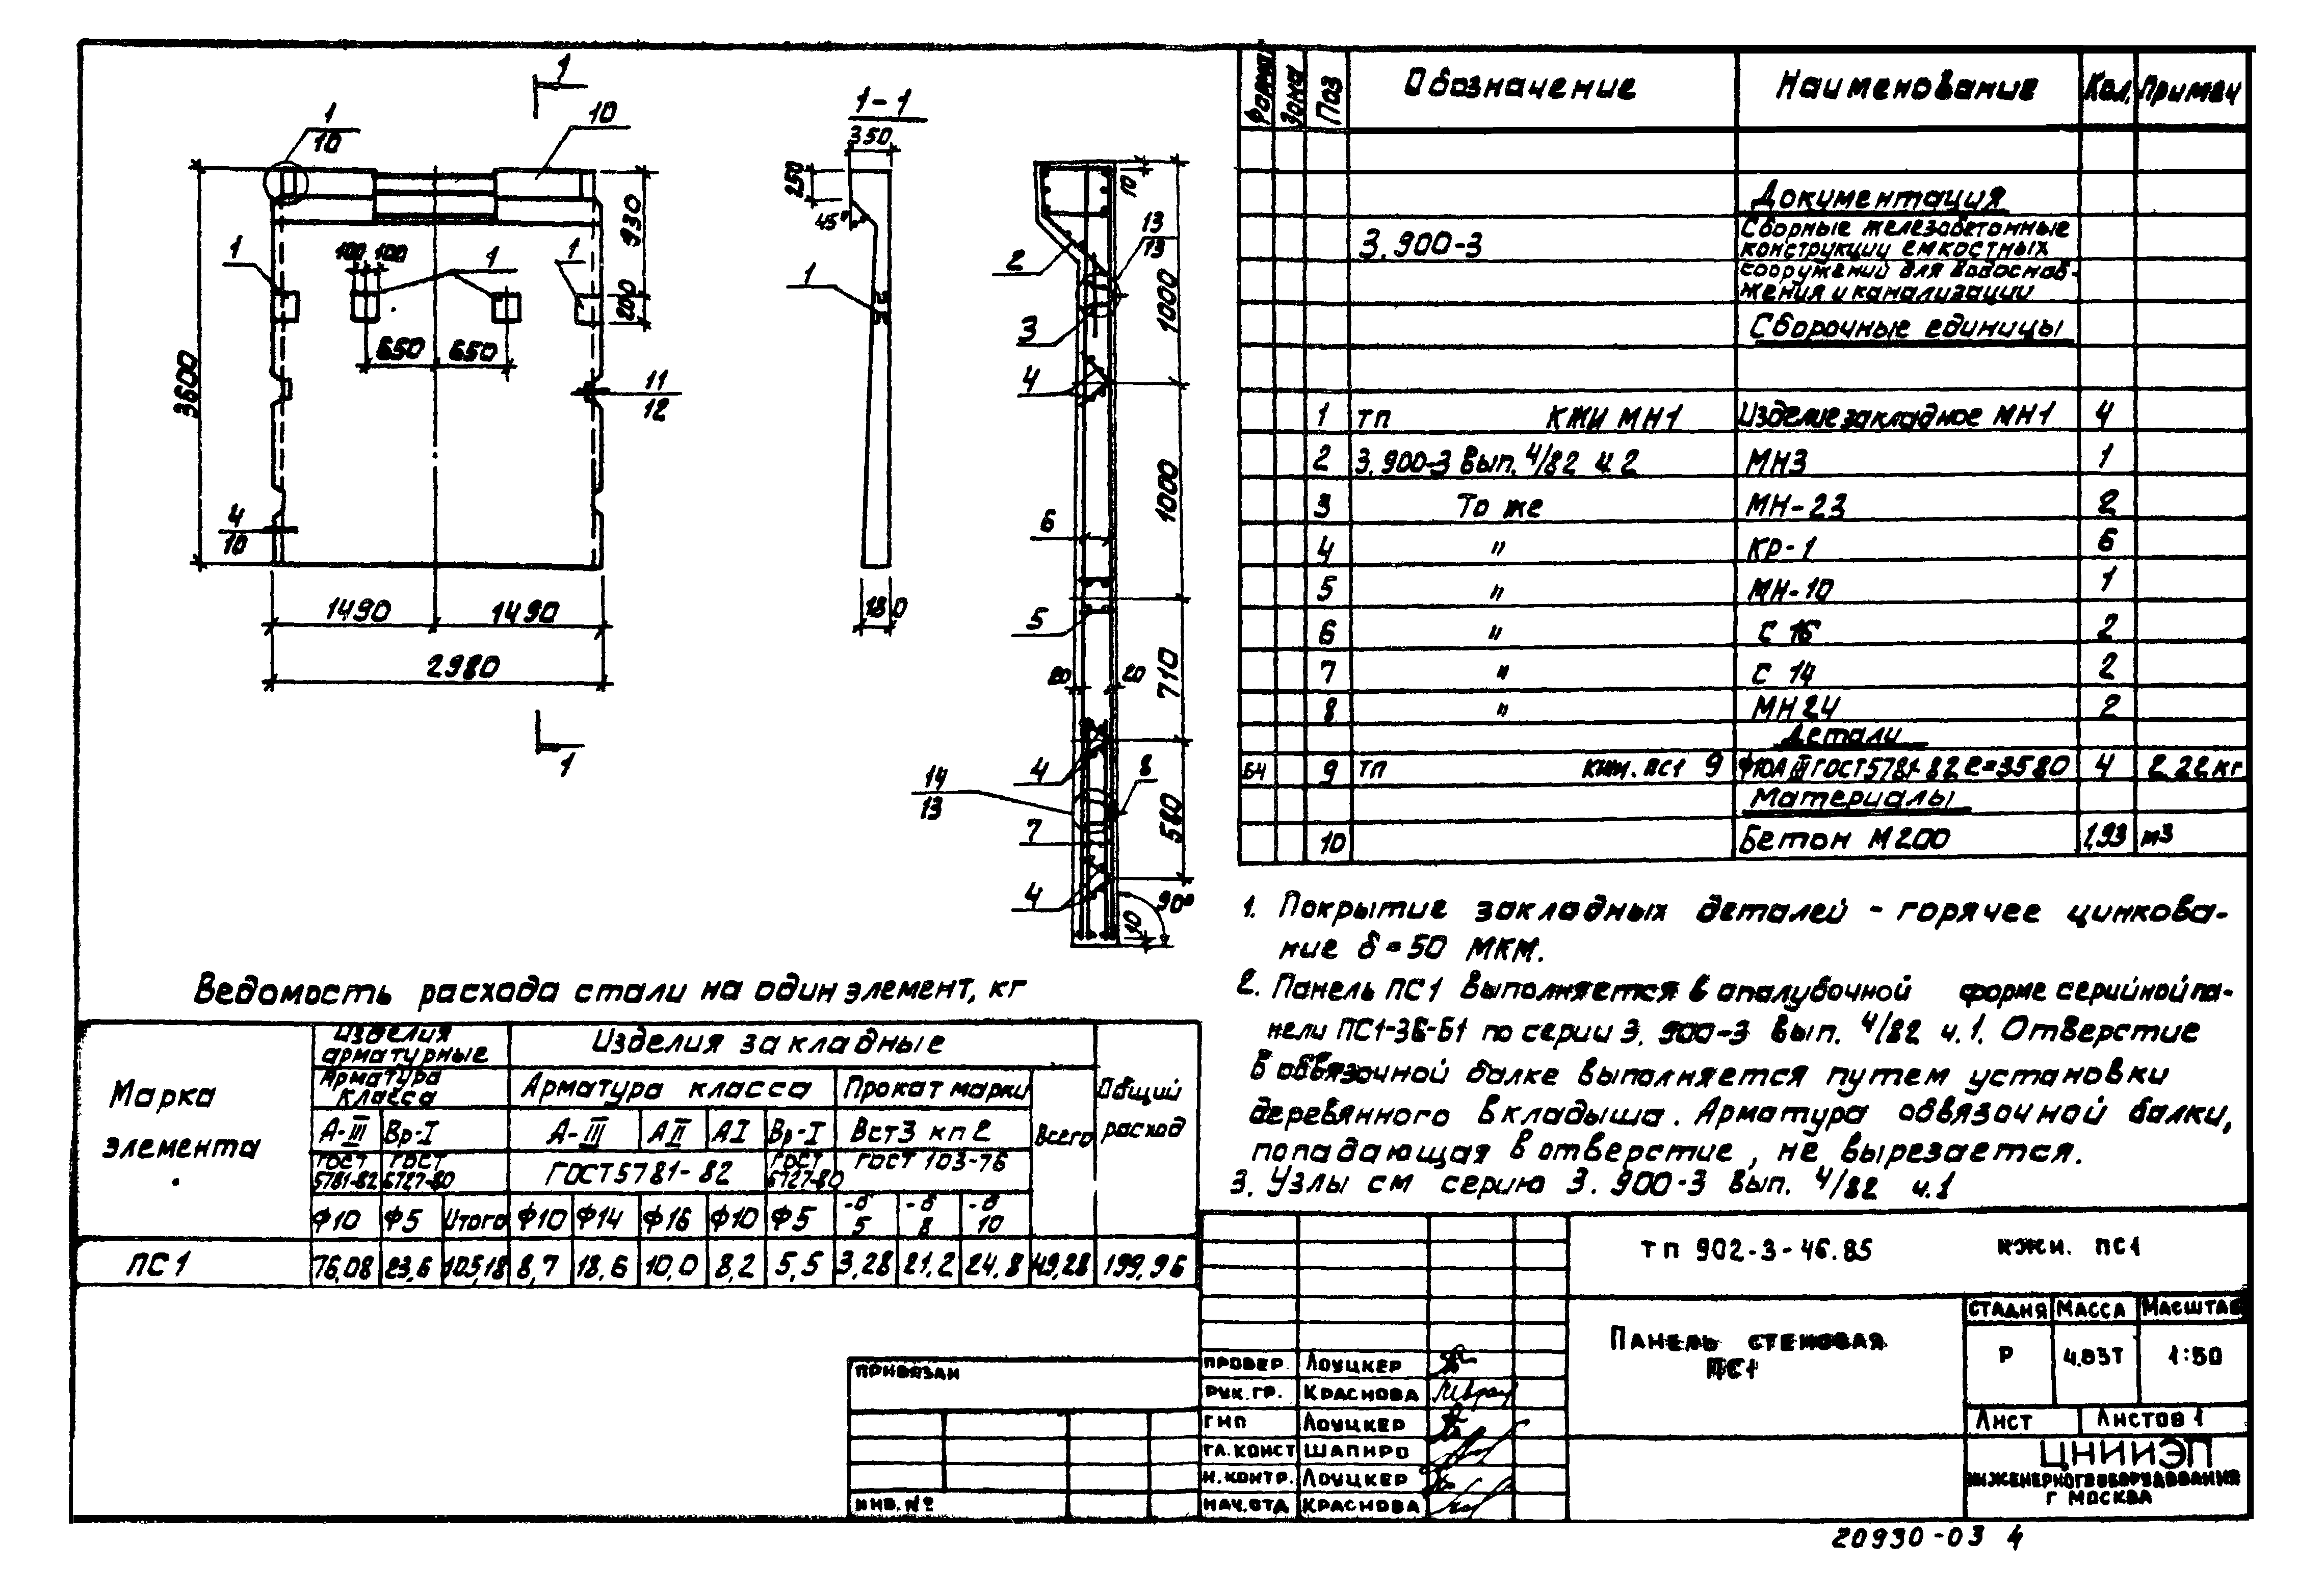 1
1
10
10
930
1
100 100
1
1
200
650 650
3600
11
12
4
10
1490 1490
2980
1
1-1
350
250
45°
1
180
10
13
13
2
1000
3
4
1000
6
5
710
20 20
4
8
14
13
560
7
4
90°
10
Формат Зона Поз Обозначение Наименование Кол. Примеч
Документация
3.900-3 Сборные железобетонные
конструкции емкостных
сооружений для водоснаб-
жения и канализации
Сборочные единицы
1 ТП КЖИ МН1 Изделие закладное МН1 4
2 3.900-3 Вып. 4/82 ч.2 МН3 1
3 То же МН-23 2
4 " КР-1 6
5 " МН-10 1
6 " С 16 2
7 " С 14 2
8 " МН24 2
Детали
БЧ 9 ТП КЖИ. ПС1 9 Ф10АIII ГОСТ5781-82 ℓ=3580 4 2.22кг
Материалы
10 Бетон М200 1,93 м3
1. Покрытие закладных деталей - горячее цинкова-
ние δ=50 МКМ.
2. Панель ПС1 выполняется в опалубочной форме серийной па-
нели ПС1-36-Б1 по серии 3.900-3 вып. 4/82 ч.1. Отверстие
в обвязочной балке выполняется путем установки
деревянного вкладыша. Арматура обвязочной балки,
попадающая в отверстие, не вырезается.
3. Узлы см серию 3.900-3 вып. 4/82 ч.1
Ведомость расхода стали на один элемент, кг
Марка
элемента
Изделия
арматурные
Изделия закладные
Общий
расход
Арматура
класса
Арматура класса Прокат марки
Всего
А-III Вр-I А-III АII АI Вр-I Вст3 кп2
ГОСТ
5781-82
ГОСТ
6727-80
ГОСТ5781-82
ГОСТ
6727-80
ГОСТ 103-76
Ф10 Ф5 Итого Ф10 Ф14 Ф16 Ф10 Ф5 -δ 5 -δ 8 -δ 10
ПС1 76,08 23,6 105,18 8,7 18,6 10,0 8,2 5,5 3,28 21,2 24,8 49,28 199,96
ПРИВЯЗАН
ИНВ. №
ТП 902-3-46.85 КЖИ. ПС1
ПАНЕЛЬ СТЕНОВАЯ
ПС1
СТАДИЯ МАССА МАСШТАБ
Р 4.83Т 1:50
ЛИСТ ЛИСТОВ 1
ПРОВЕР. ЛОУЦКЕР
РУК.ГР. КРАСНОВА
ГИП ЛОУЦКЕР
ГЛ.КОНСТ ШАПИРО
Н.КОНТР. ЛОУЦКЕР
НАЧ.ОТД КРАСНОВА
ЦНИИЭП
ИНЖЕНЕРНОГО ОБОРУДОВАНИЯ
Г МОСКВА
20930-03 4